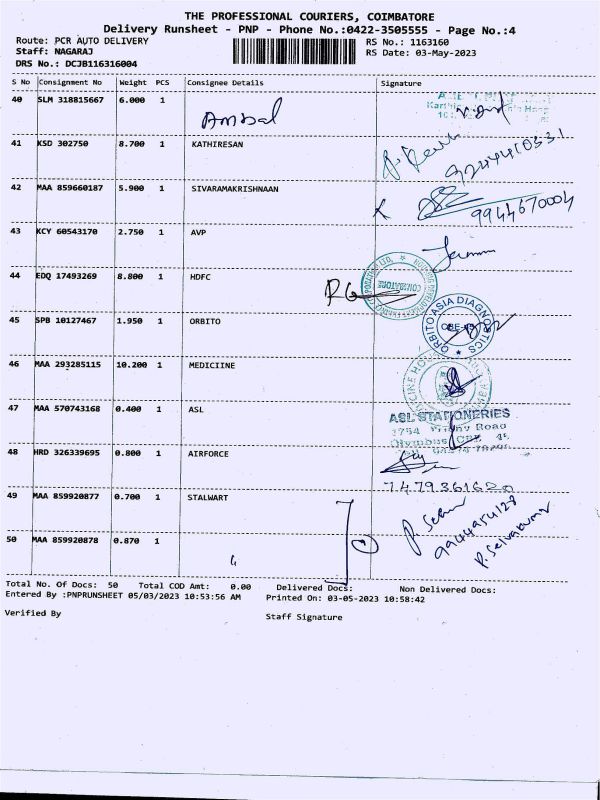 THE PROFESSIONAL COURIERS, COIMBATORE
Delivery Runsheet - PNP - Phone No.:0422-3505555 - Page No.:4
Route: PCR AUTO DELIVERY
RS No.: 1163160
Staff: NAGARAJ
RS Date: 03-May-2023
DRS No.: DCJB116316004
S No Consignment No Weight PCS Consignee Details Signature
40 SLM 318815667 6.000 1
Ambal
41 KSD 302750 8.700 1 KATHIRESAN
9244410331
42 MAA 859660187 5.900 1 SIVARAMAKRISHNAAN
9944670004
43 KCY 60543170 2.750 1 AVP
44 EDQ 17493269 8.800 1 HDFC
COIMBATORE
45 SPB 10127467 1.950 1 ORBITO
ORBITO ASIA DIAGNOSTICS
46 MAA 293285115 10.200 1 MEDICIINE
47 MAA 570743168 0.400 1 ASL
ASL STATIONERIES
48 HRD 326339695 0.800 1 AIRFORCE
7479361620
49 MAA 859920877 0.700 1 STALWART
9944954128
P. Selvakumar
50 MAA 859920878 0.870 1
Total No. Of Docs: 50 Total COD Amt: 0.00 Delivered Docs: Non Delivered Docs:
Entered By :PNPRUNSHEET 05/03/2023 10:53:56 AM Printed On: 03-05-2023 10:58:42
Verified By
Staff Signature